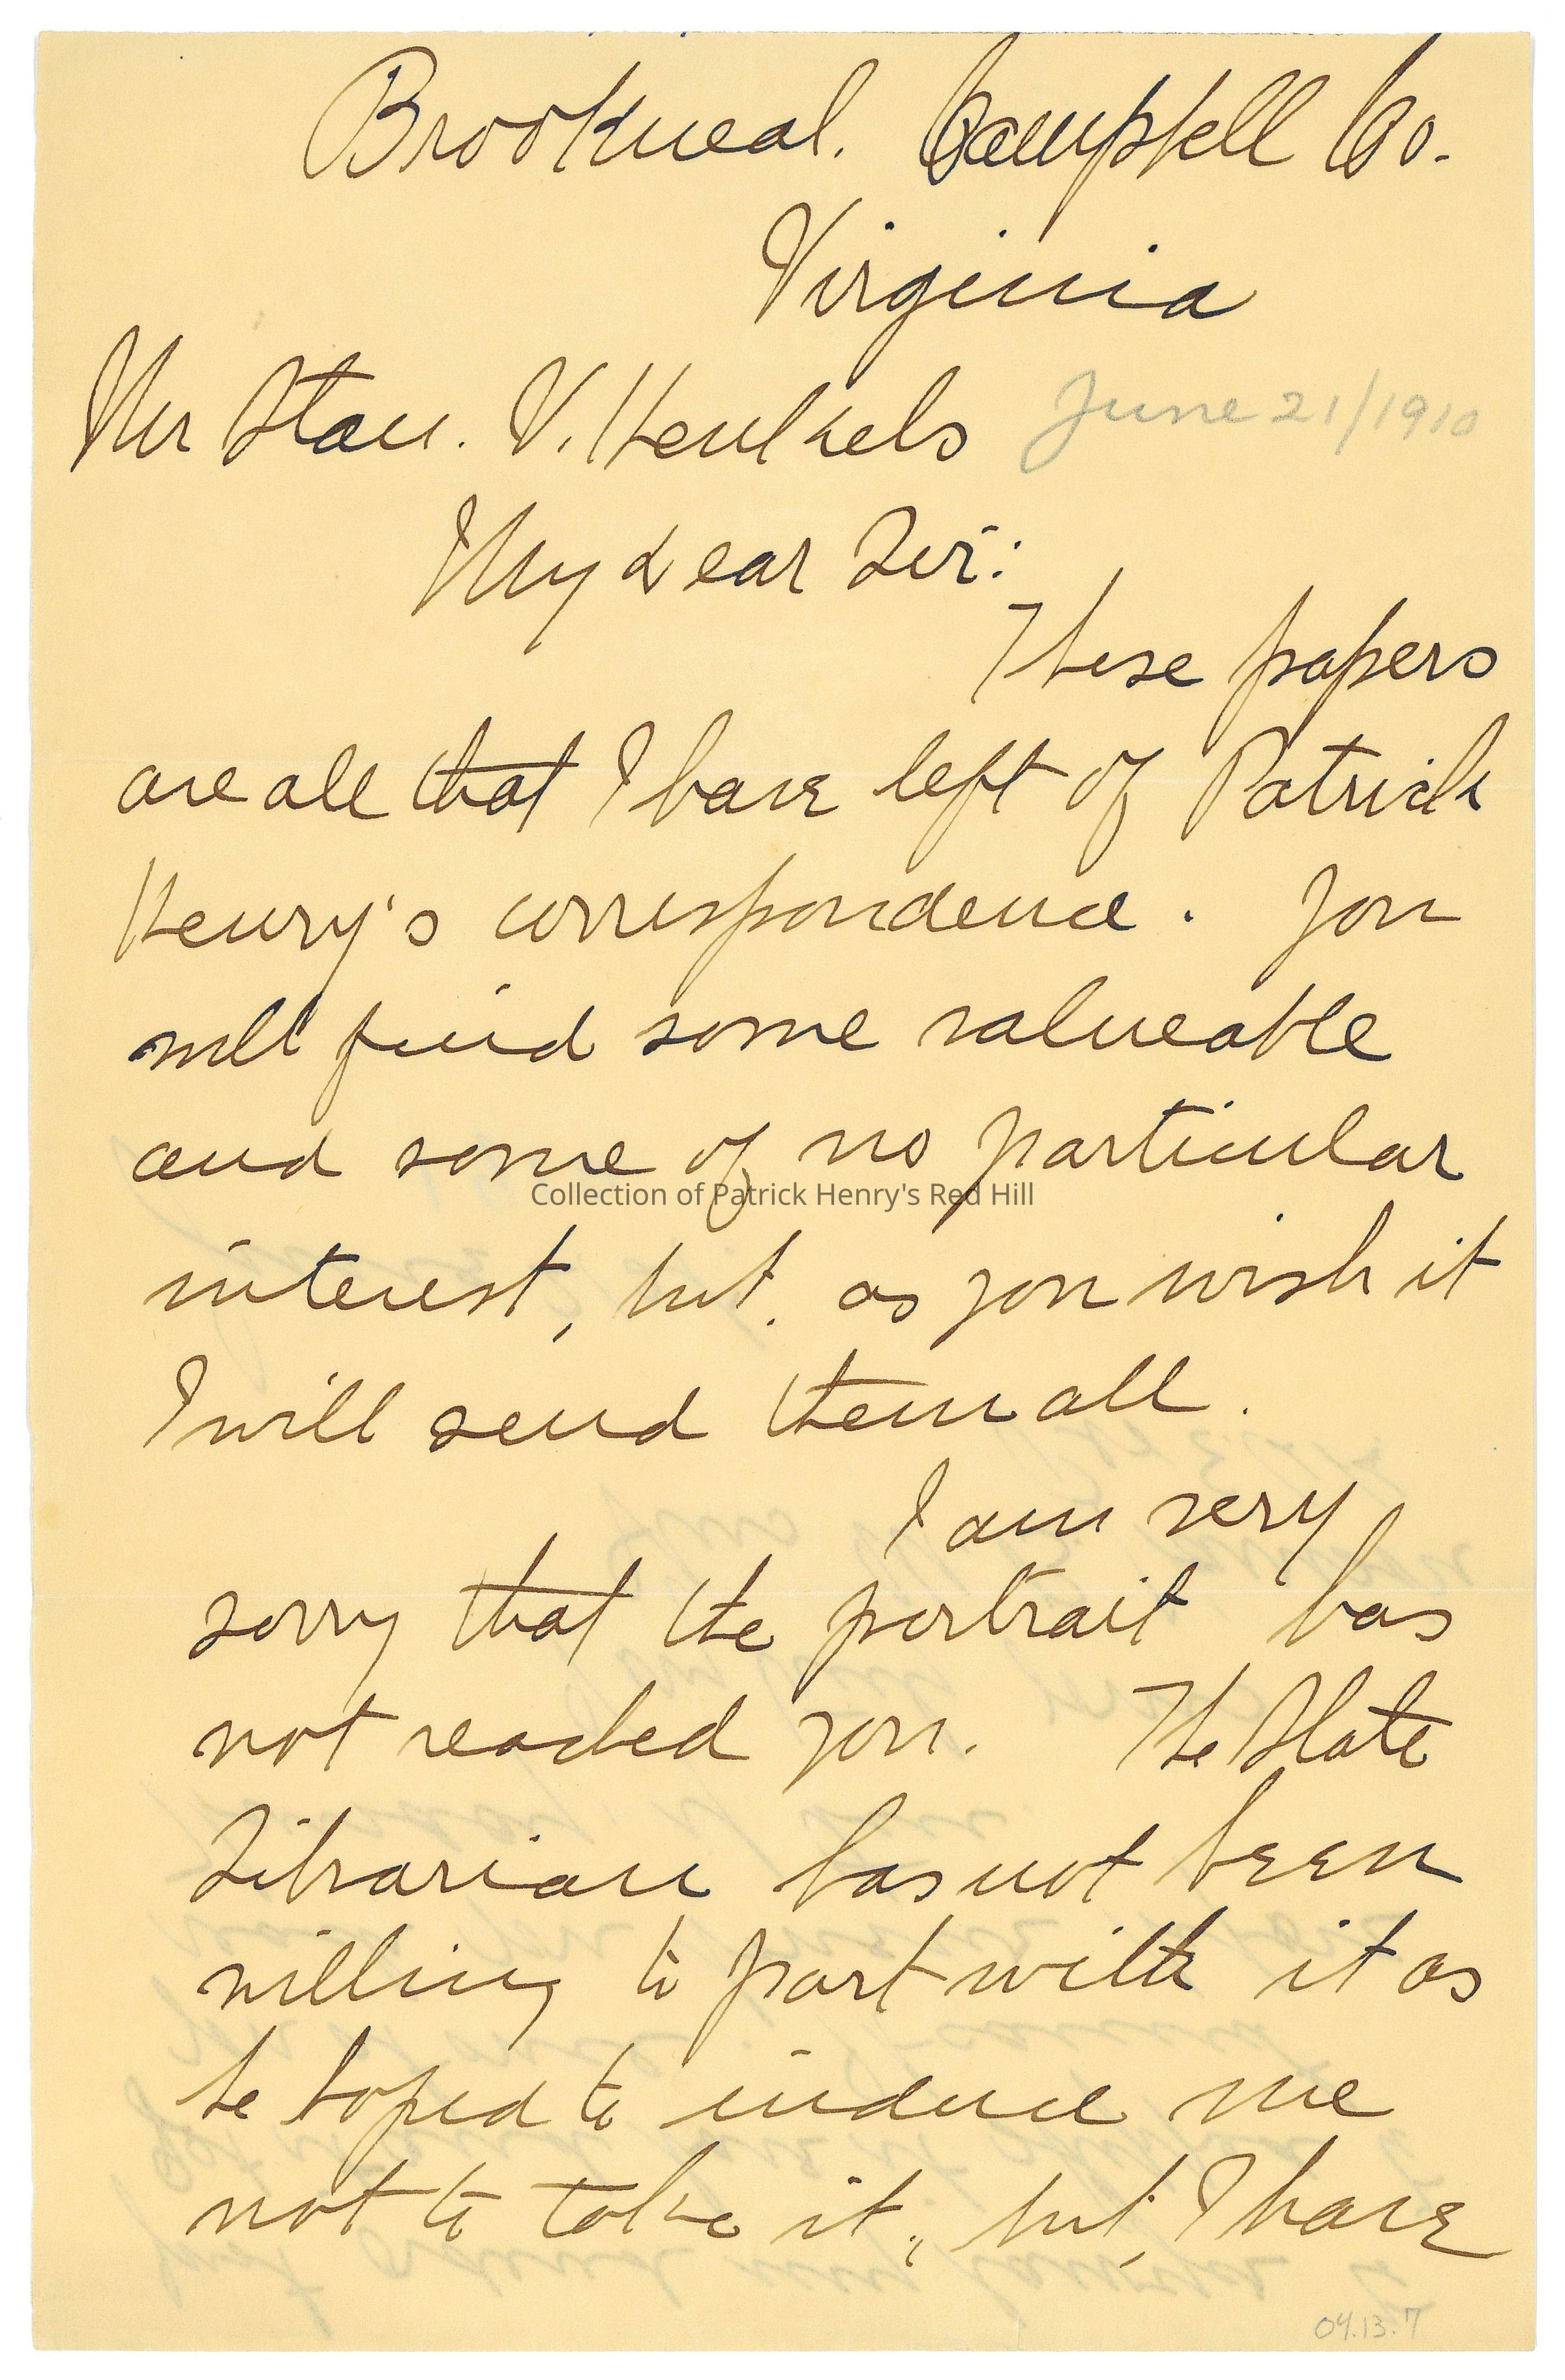 Brookneal. Campbell Co.
Virginia
Mr Stan. V. Henkels June 21/1910
My dear Sir:
These papers
are all that I have left of Patrick
Henry's correspondence. You
will find some valueable
and some of no particular
Collection of Patrick Henry's Red Hill
interest, but. as you wish it
I will send them all.
I am very
sorry that the portrait has
not reached you. The State
Librarian has not been
willing to part with it as
he hoped to induce me
not to take it, but, I have
04.13.7